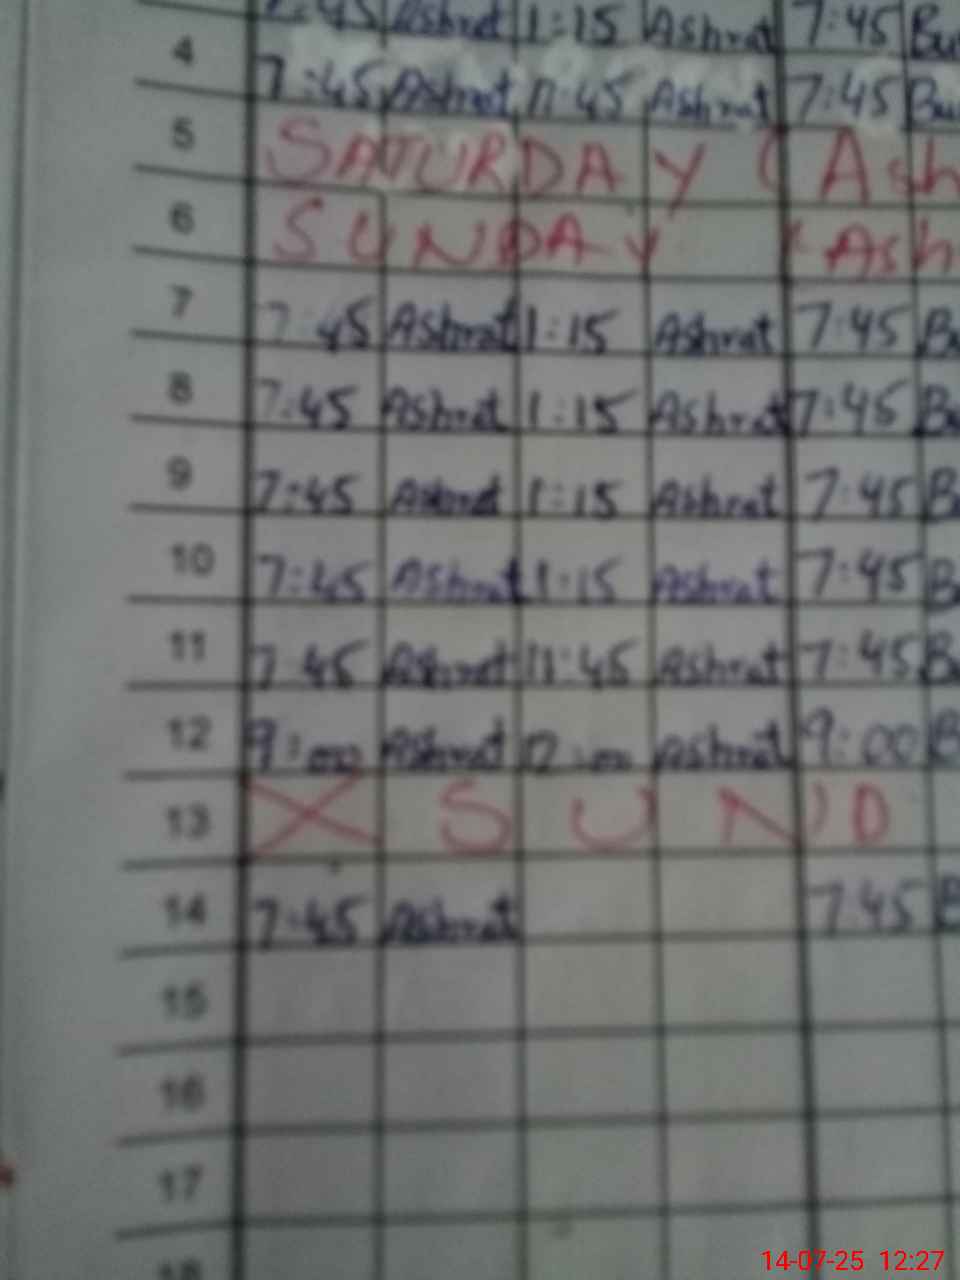 7:45 Ashrat 1:15 Ashrat 7:45 Bu
4 7:45 Ashrat 11:45 Ashrat 7:45 Bu
5 SATURDAY (Ash
6 SUNDAY (Ash
7 7:45 Ashrat 1:15 Ashrat 7:45 Bu
8 7:45 Ashrat 1:15 Ashrat 7:45 Bu
9 7:45 Ashrat 1:15 Ashrat 7:45 B
10 7:45 Ashrat 1:15 Ashrat 7:45 B
11 7:45 Ashrat 11:45 Ashrat 7:45 B
12 9:00 Ashrat 12:00 Ashrat 9:00 B
13 X SUND
14 7:45 Ashrat 7:45 B
15
16
17
18
14-07-25 12:27